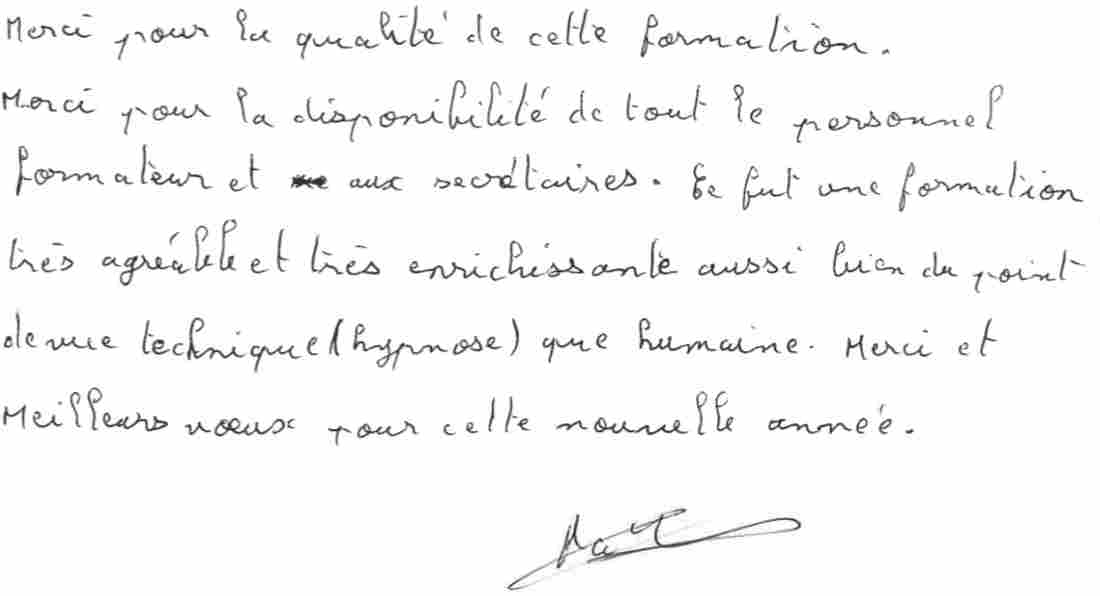 Merci pour la qualité de cette formation.
Merci pour la disponibilité de tout le personnel
formateur et aux secrétaires. Ce fut une formation
très agréable et très enrichissante aussi bien du point
de vue technique (hypnose) que humaine. Merci et
Meilleurs vœux pour cette nouvelle année.